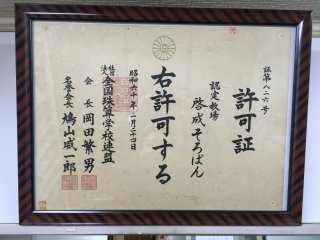 証第八二六号
許可証
認定教場
啓成そろばん
右許可する
昭和六十年二月二十四日
全国珠算学校連盟
会長 岡田繁男
名誉会長 鳩山威一郎